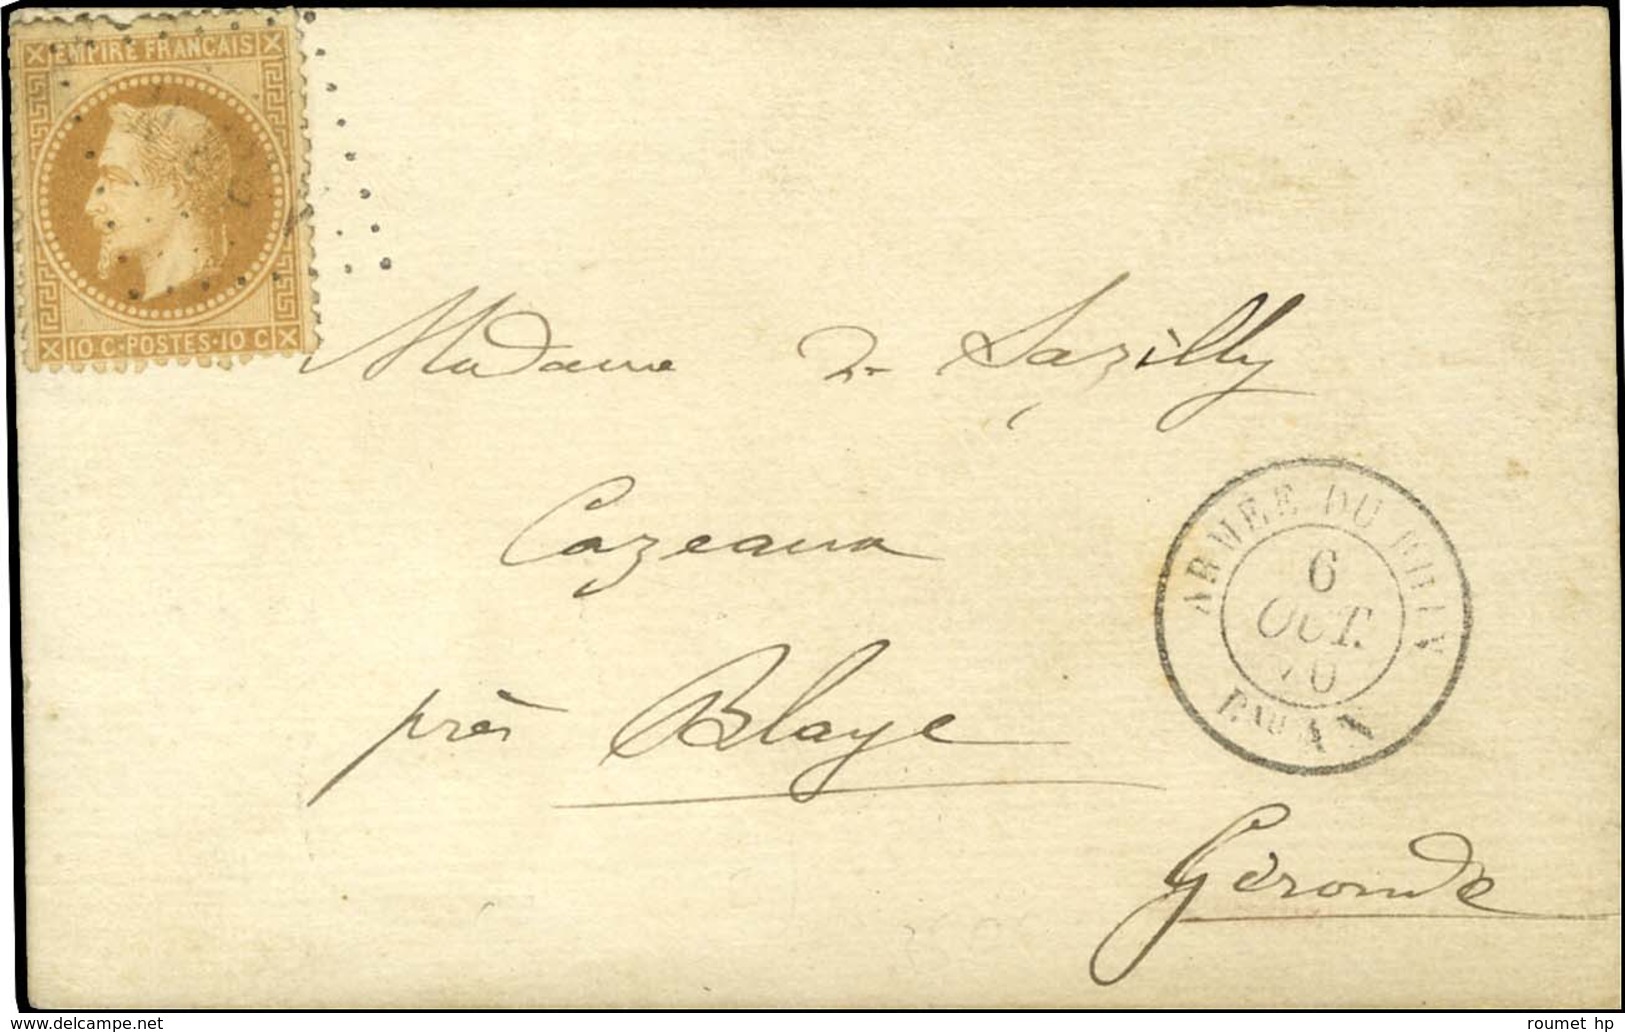 EMPIRE FRANCAIS
10 C·POSTES·10 C
Madame de Lazilly
Cazeaux
près Blaye
Gironde
ARMÉE DU RHIN
6
OCT.
70
Bau A
delcampe.net
roumet hp